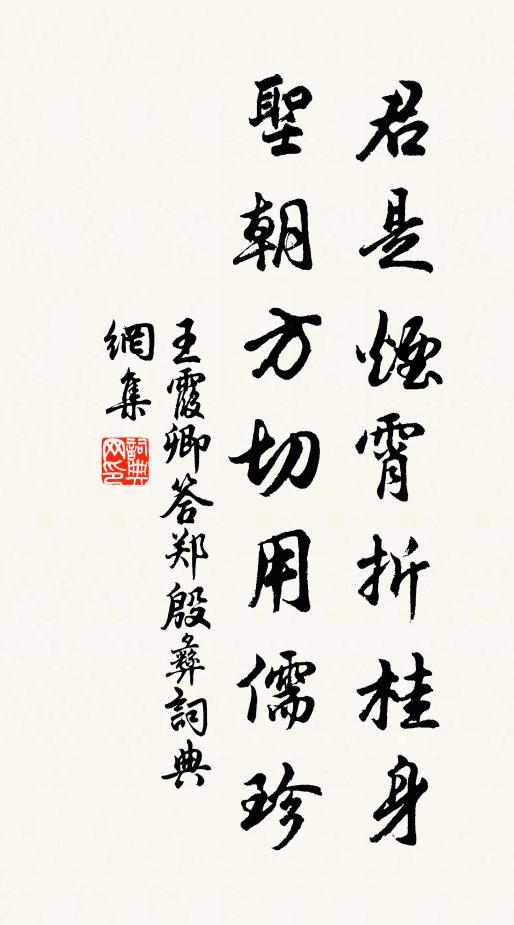 君是煙霄折桂身
聖朝方切用儒珍
王霞卿答郑殷彝詞典
網集
詞典網印